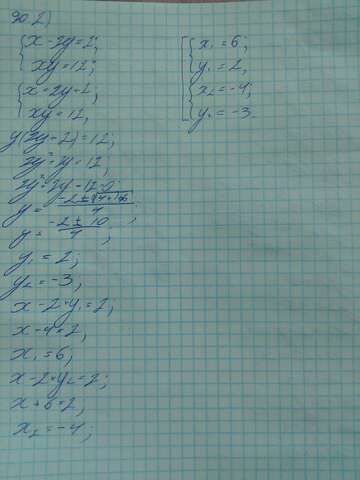 90.2)
x - 2y = 2;
xy = 12;
x = 2y + 2;
xy = 12,
y(2y + 2) = 12;
2y² + 2y = 12,
2y² + 2y - 12 = 0;
y = (-2 ± √(4 + 96))/4;
y = (-2 ± 10)/4;
y₁ = 2;
y₂ = -3;
x - 2·y₁ = 2;
x - 4 = 2;
x₁ = 6;
x - 2·y₂ = 2;
x + 6 = 2;
x₂ = -4;
x₁ = 6;
y₁ = 2,
x₂ = -4;
y₂ = -3.